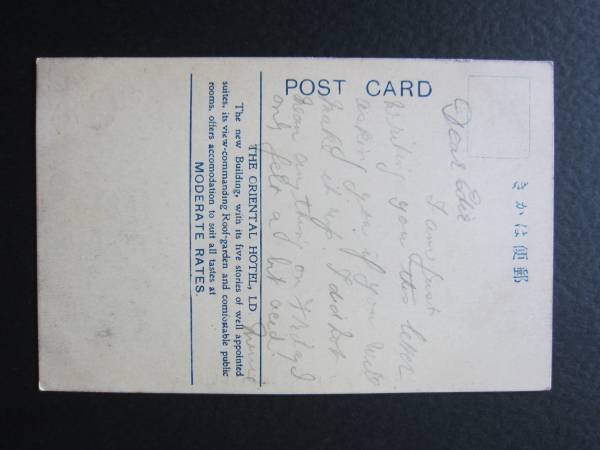 POST CARD
きかは便郵
THE ORIENTAL HOTEL, LD
The new Building, with its five stories of well appointed
suites, its view-commanding Roof-garden and comfortable public
rooms, offers accomodation to suit all tastes at
MODERATE RATES.
Dear Edie
I am just
writing you this letter
asking you if you
make it up. I did not
mean anything on Friday I
only felt a bit